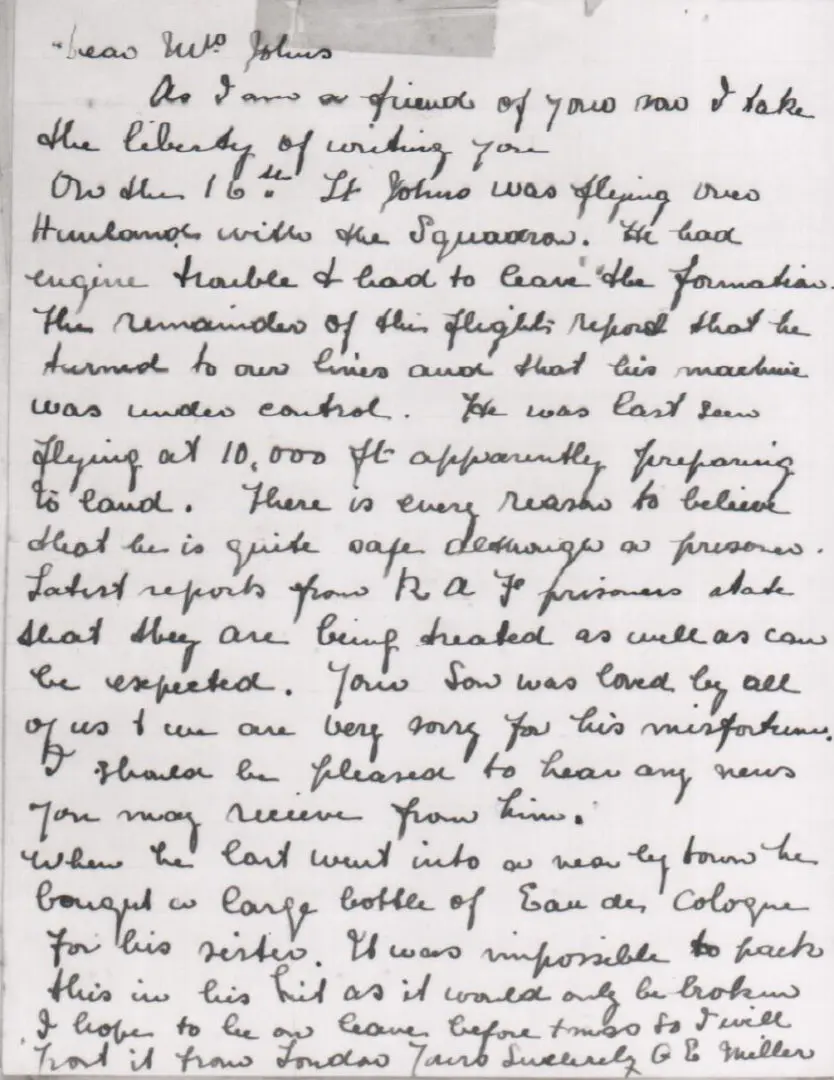 Dear Mrs Johns
As I am a friend of your son I take
the liberty of writing you
On the 16th. Lt Johns was flying over
Hunland with the Squadron. He had
engine trouble & had to leave the formation.
The remainder of the flight report that he
turned to our lines and that his machine
was under control. He was last seen
flying at 10,000 ft apparently preparing
to land. There is every reason to believe
that he is quite safe although a prisoner.
Latest reports from R A F prisoners state
that they are being treated as well as can
be expected. Your Son was loved by all
of us & we are very sorry for his misfortune.
I should be pleased to hear any news
you may recieve from him.
When he last went into a near by town he
bought a large bottle of Eau de Cologne
for his sister. It was impossible to pack
this in his kit as it would only be broken
I hope to be on leave before Xmas So I will
Post it from London Yours Sincerely G E Miller